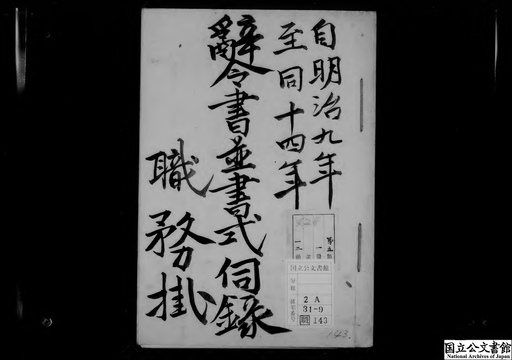 自明治九年
至同十四年
辭令書並書式伺録
職務掛
第五類
国立公文書館
2 A
31-9
143
143
国立公文書館
National Archives of Japan